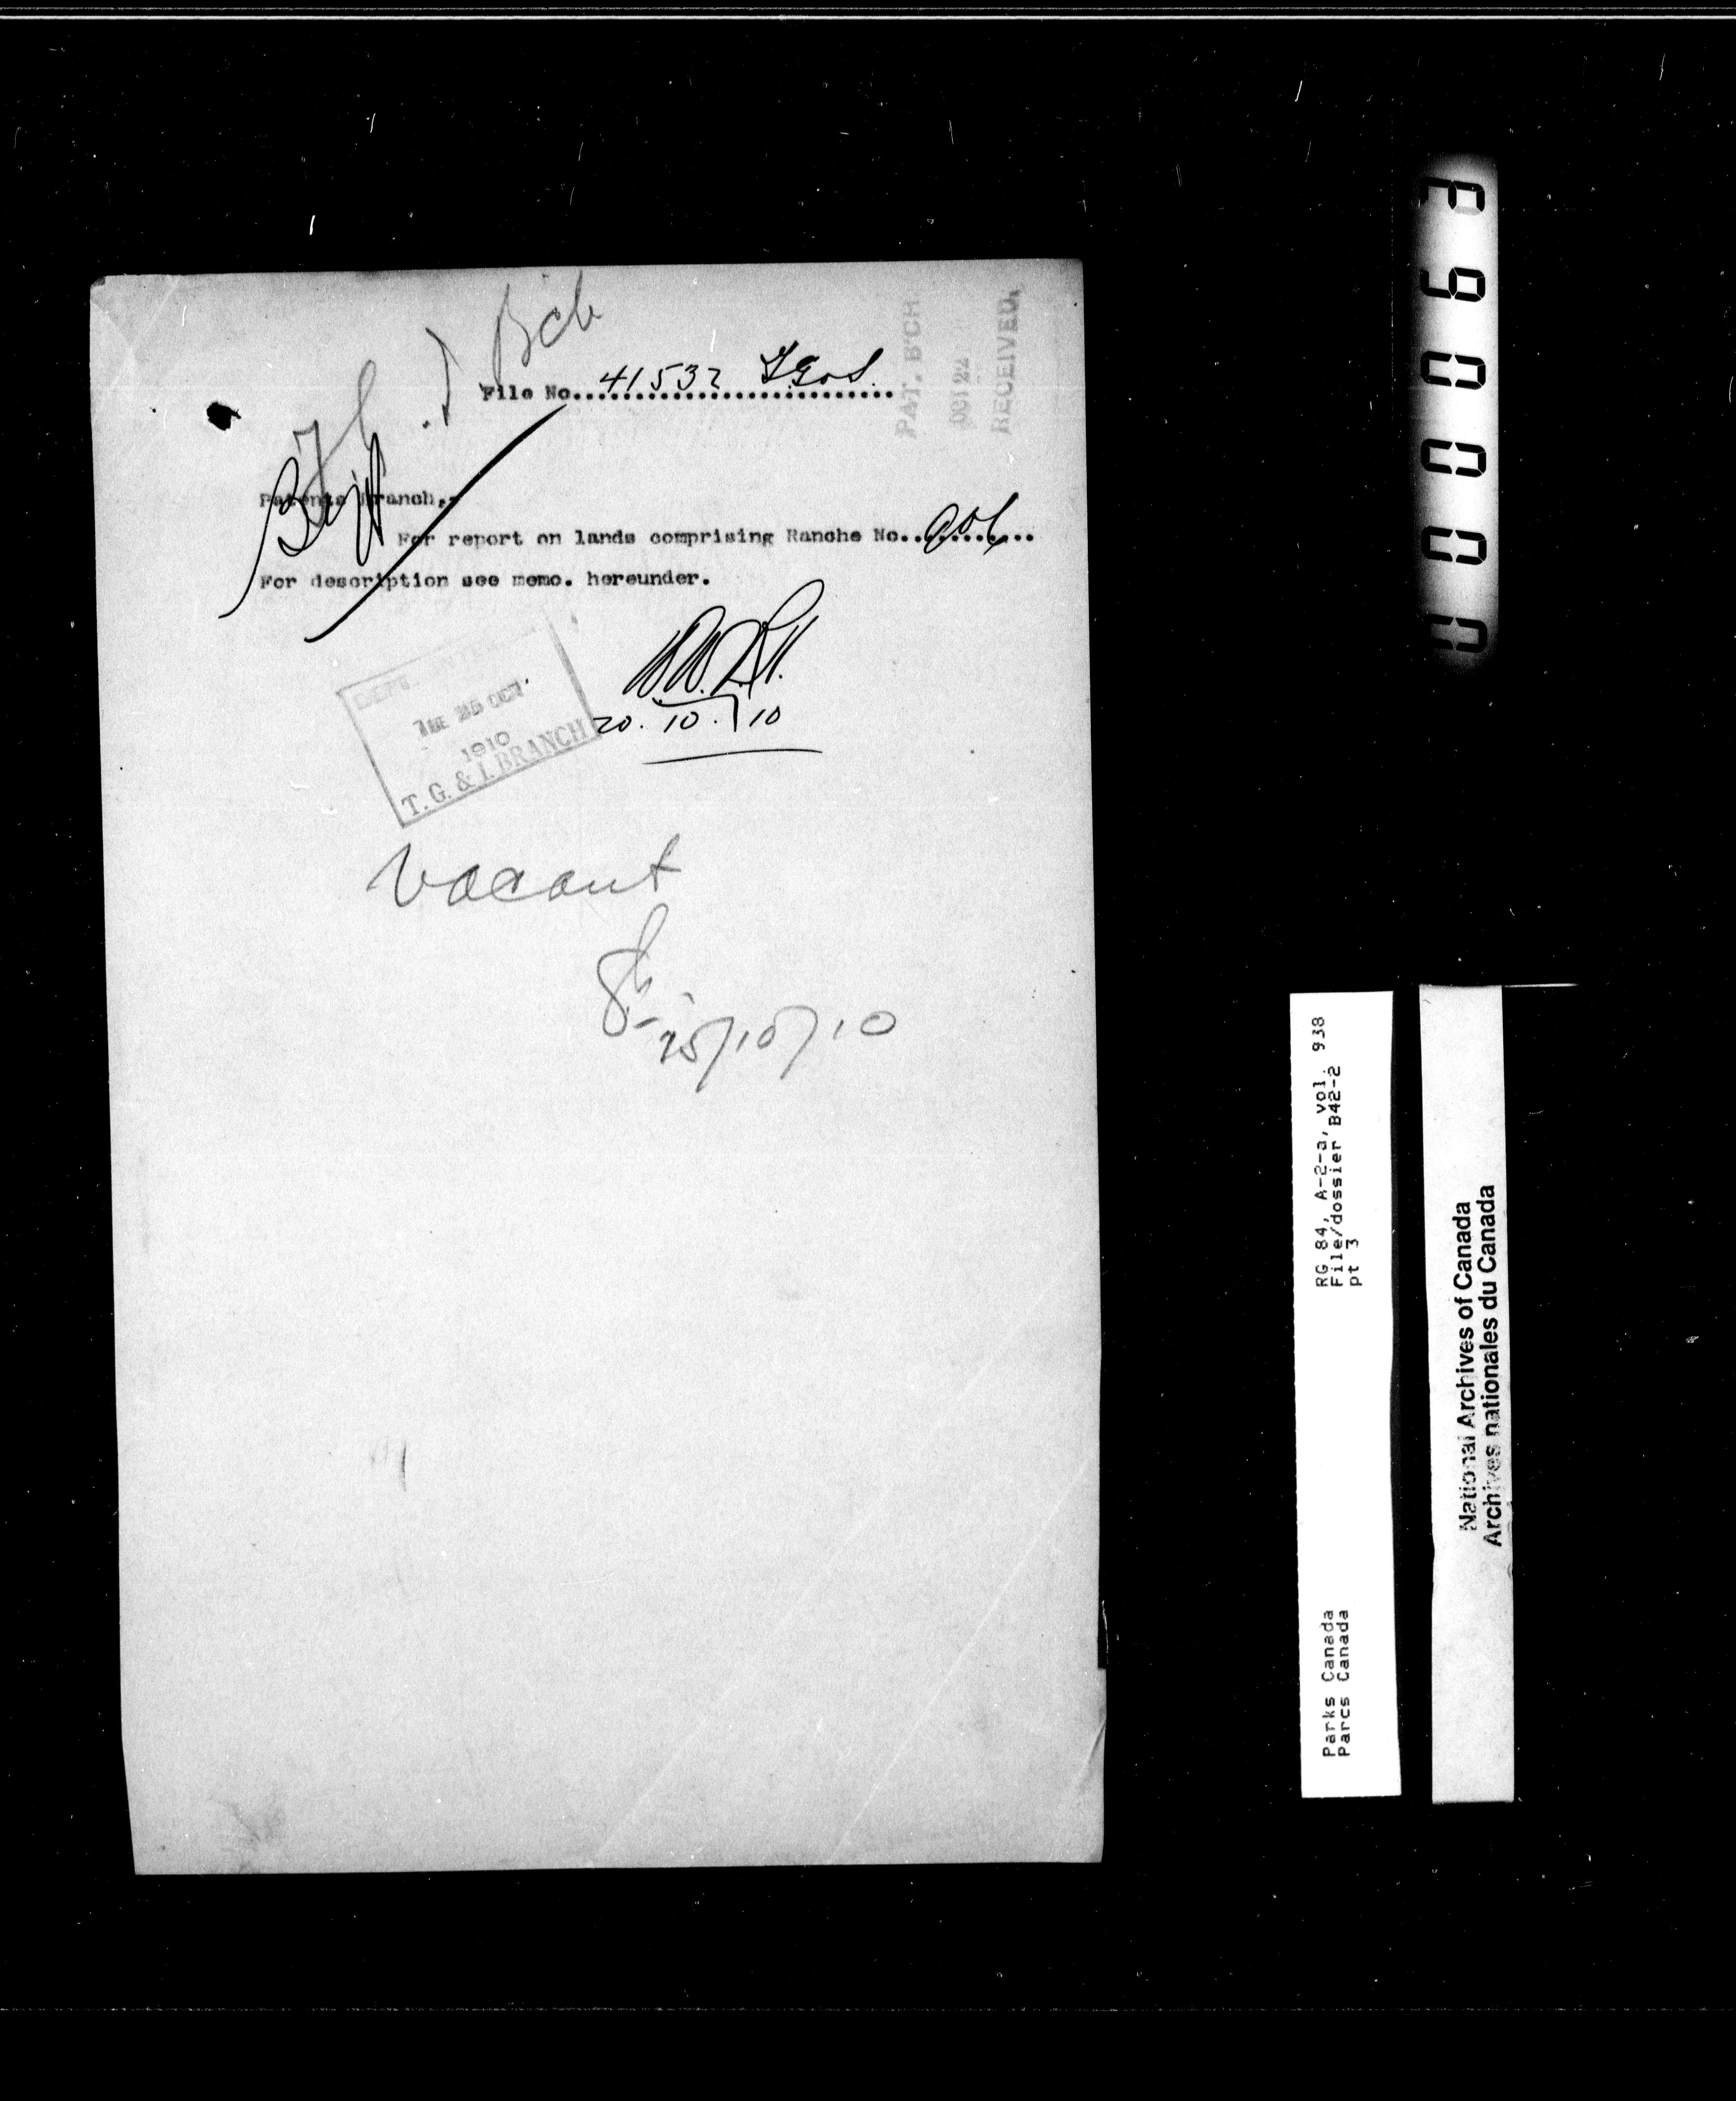 Bch
File No. 41532
PAT. B'CH
OCT 22
RECEIVED.
Patents Branch,-
For report on lands comprising Ranche No.
For description see memo. hereunder.
20.10.10
DEPT. INTER
25 OCT.
1910
T. G. & I. BRANCH
Vacant
25/10/10
000063
RG 84, A-2-a, vol. 938
File/dossier B42-2
pt 3
Parks Canada
Parcs Canada
National Archives of Canada
Archives nationales du Canada